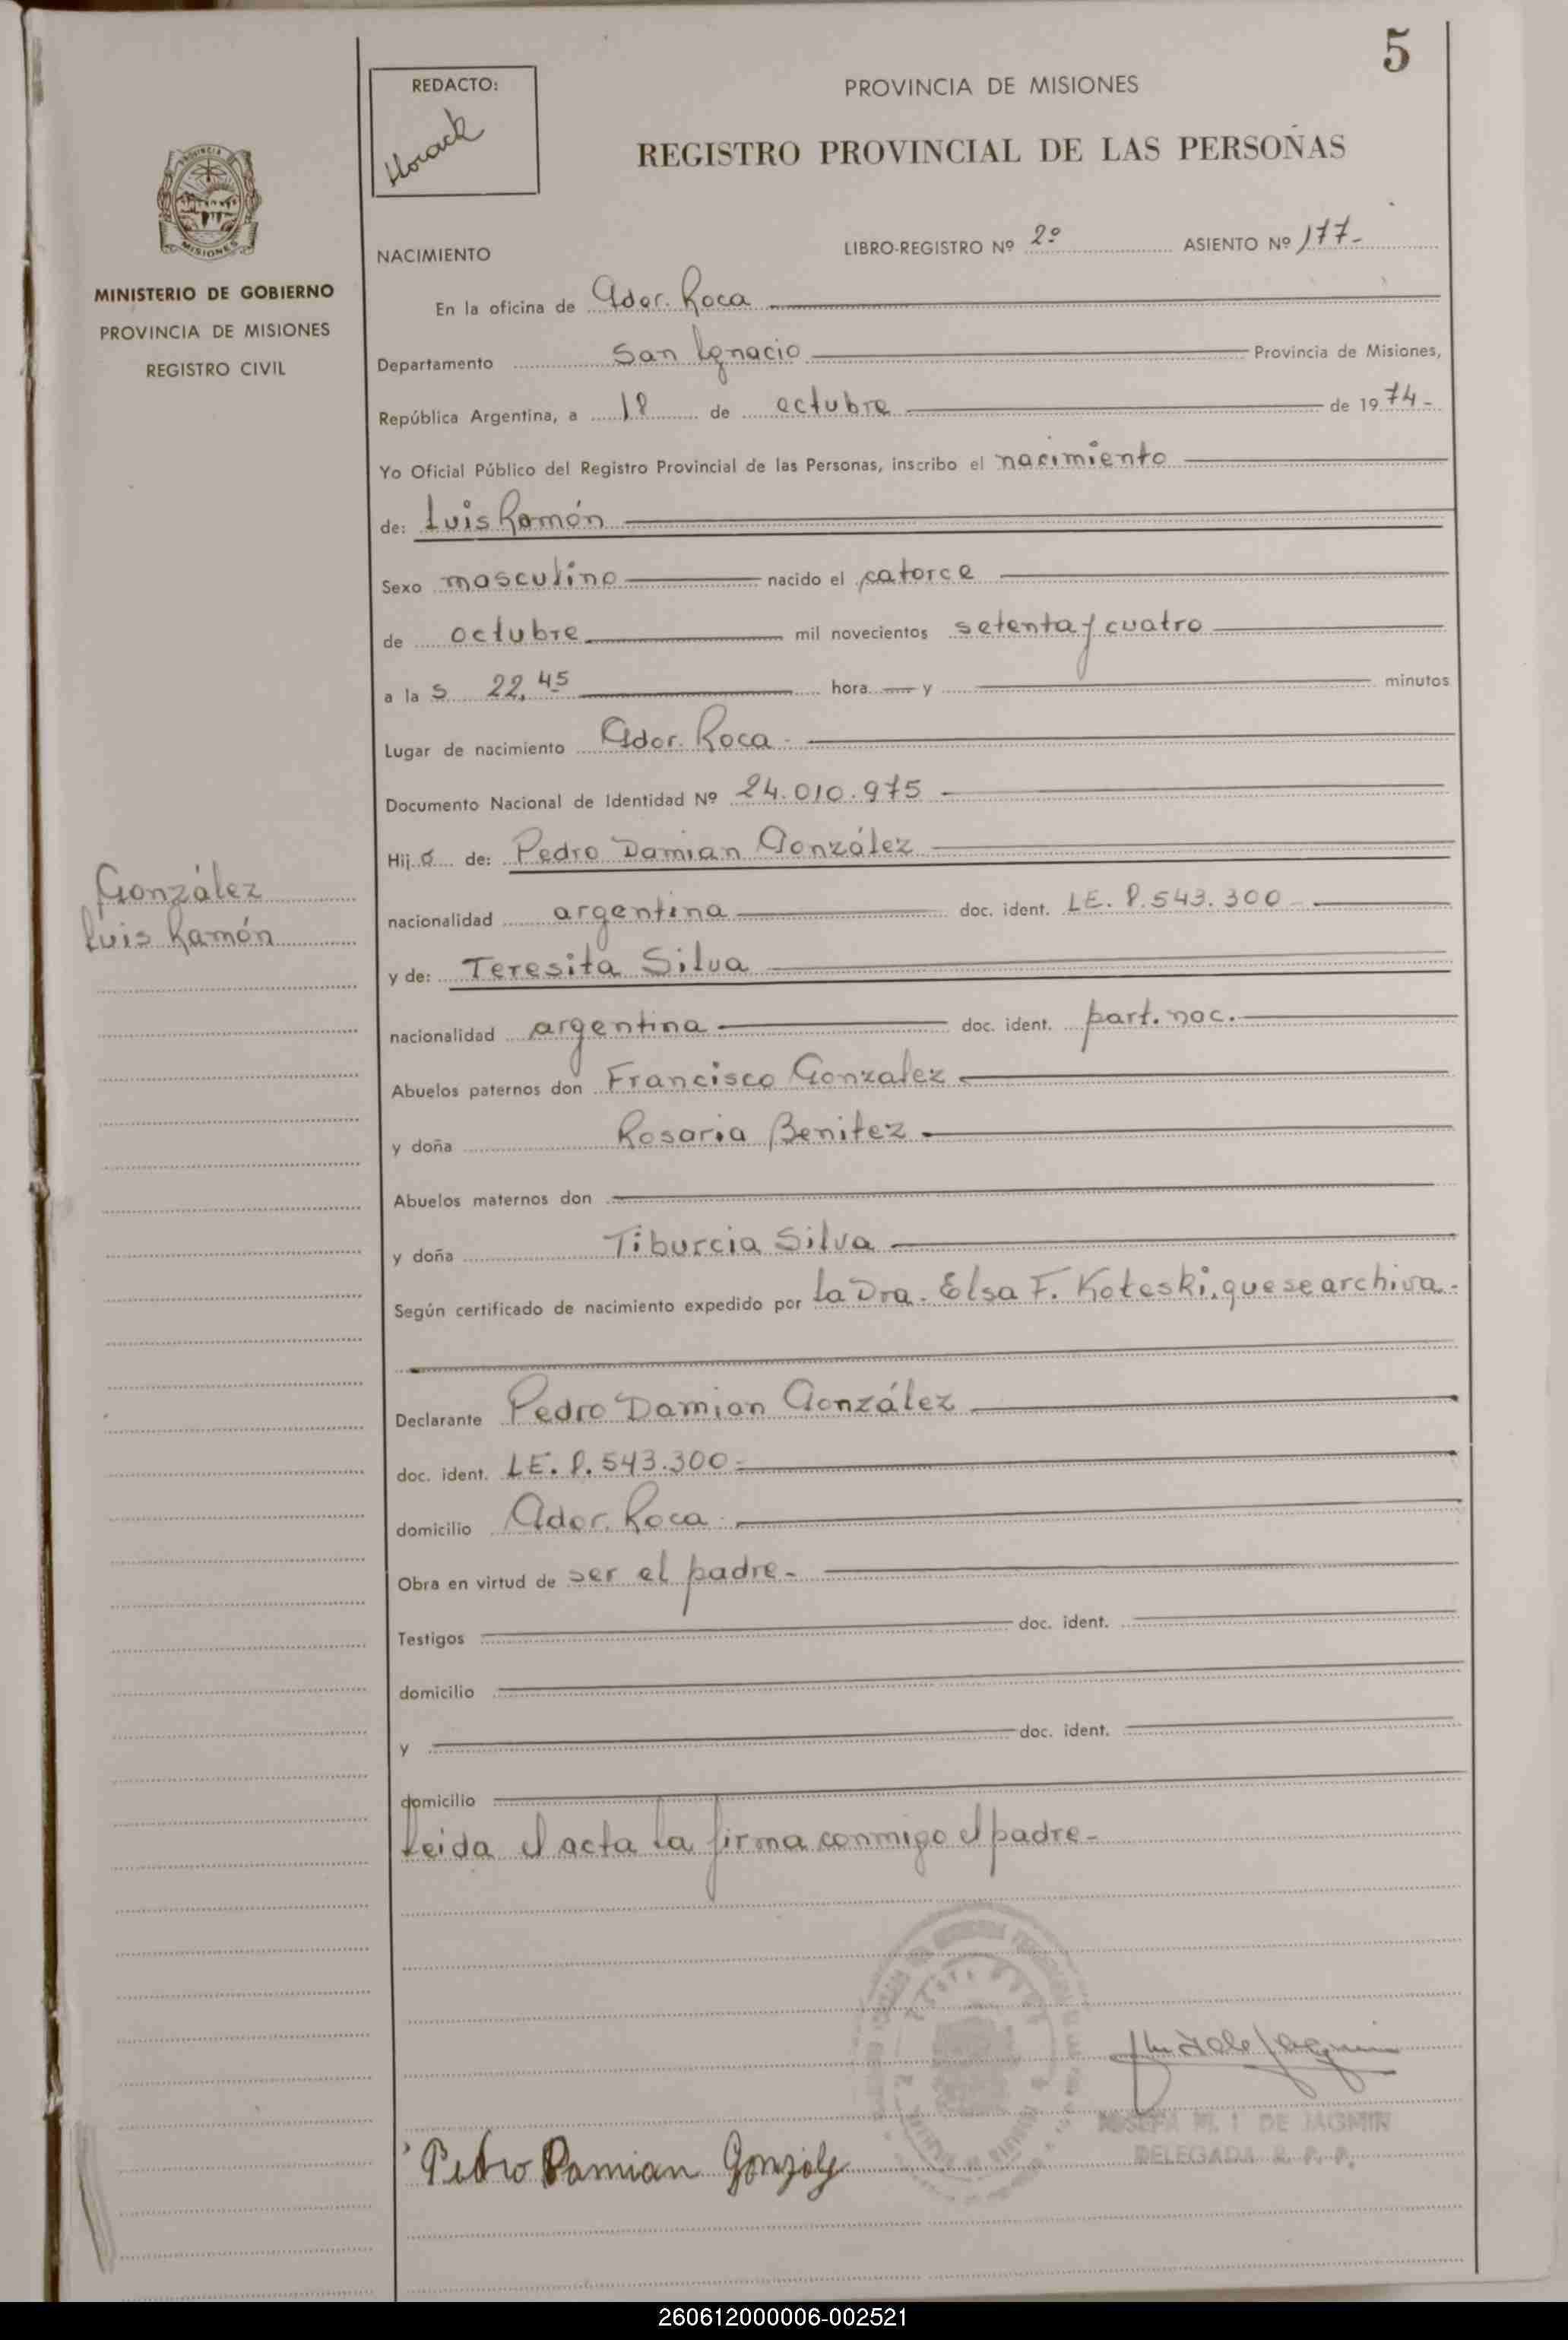 5
REDACTO:
Horack
PROVINCIA DE MISIONES
REGISTRO PROVINCIAL DE LAS PERSONAS
MISIONES
MINISTERIO DE GOBIERNO
PROVINCIA DE MISIONES
REGISTRO CIVIL
NACIMIENTO LIBRO-REGISTRO Nº 2º ASIENTO Nº 177-
En la oficina de Gdor. Roca
Departamento San Ignacio Provincia de Misiones,
República Argentina, a 18 de octubre de 1974-
Yo Oficial Público del Registro Provincial de las Personas, inscribo el nacimiento
de: Luis Ramón
Sexo masculino nacido el catorce
de octubre mil novecientos setenta y cuatro
a las 22,45 hora y minutos
Lugar de nacimiento Gdor. Roca-
Documento Nacional de Identidad Nº 24.010.975
Hijo de: Pedro Damian González
González
Luis Ramón
nacionalidad argentina doc. ident. LE. 8.543.300
y de: Teresita Silva
nacionalidad argentina doc. ident. part. nac.
Abuelos paternos don Francisco Gonzalez
y doña Rosaria Benitez
Abuelos maternos don
y doña Tiburcia Silva
Según certificado de nacimiento expedido por La Dra. Elsa F. Koteski, que se archiva.
Declarante Pedro Damian González
doc. ident. LE. 8.543.300
domicilio Gdor. Roca
Obra en virtud de ser el padre-
Testigos doc. ident.
domicilio
y doc. ident.
domicilio
Leida el acta la firma conmigo el padre-
M. I DE JAGMIN
DELEGADA R. P. P.
Pedro Damian Gonzalez
260612000006-002521